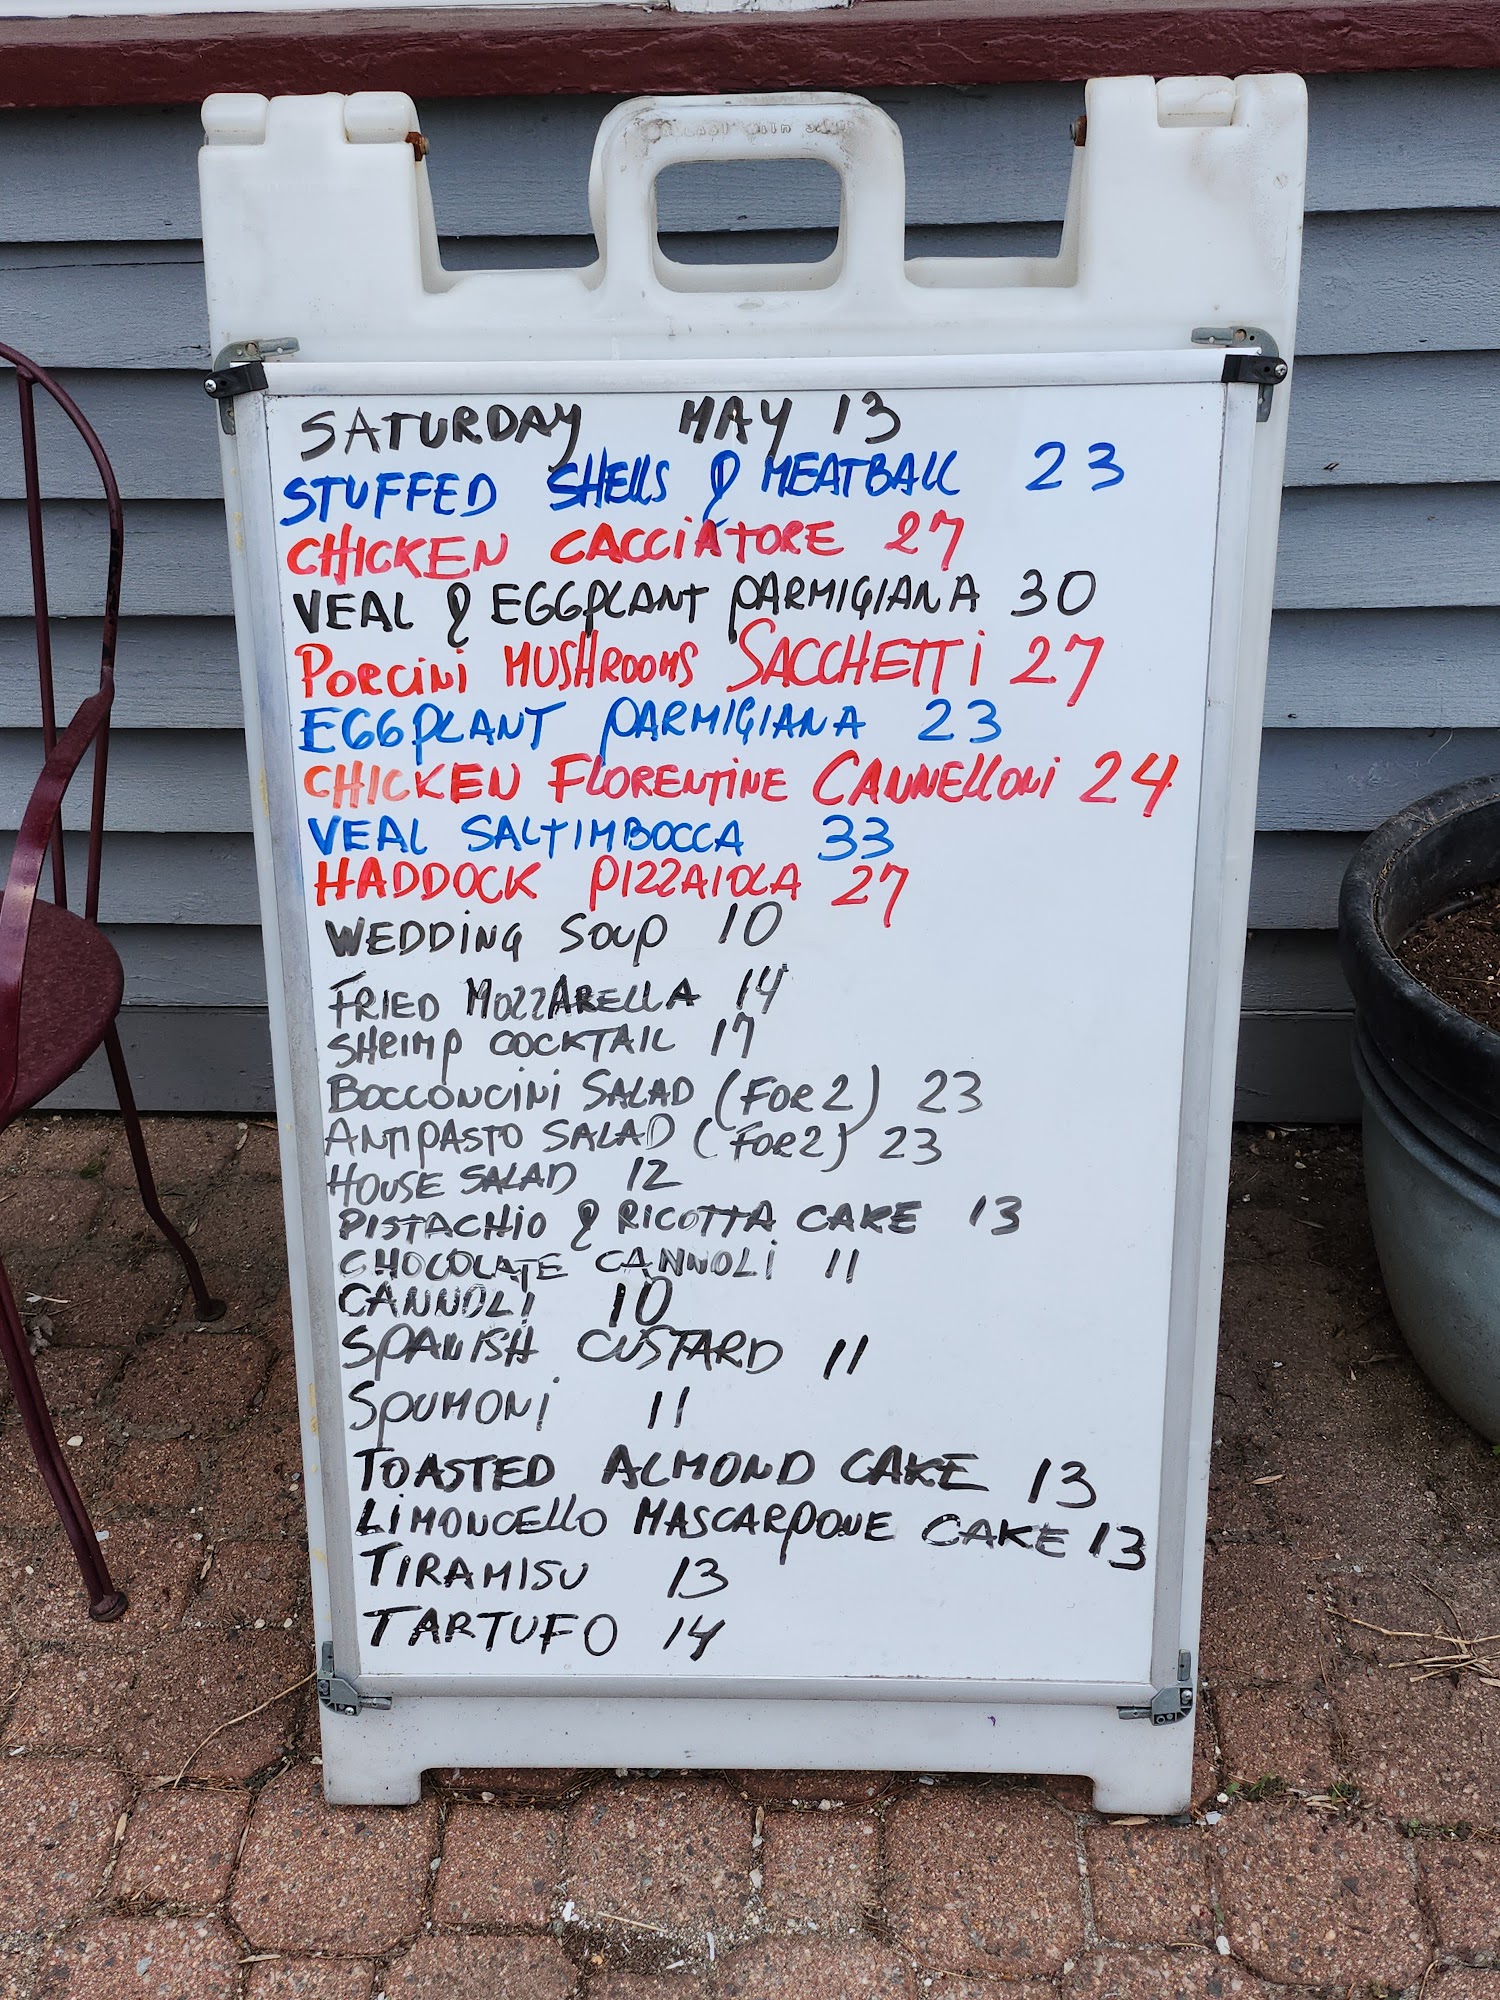 SATURDAY MAY 13
STUFFED SHELLS & MEATBALL 23
CHICKEN CACCIATORE 27
VEAL & EGGPLANT PARMIGIANA 30
PORCINI MUSHROOMS SACCHETTI 27
EGGPLANT PARMIGIANA 23
CHICKEN FLORENTINE CANNELLONI 24
VEAL SALTIMBOCCA 33
HADDOCK PIZZAIOLA 27
WEDDING SOUP 10
FRIED MOZZARELLA 14
SHRIMP COCKTAIL 17
BOCCONCINI SALAD (FOR 2) 23
ANTIPASTO SALAD (FOR 2) 23
HOUSE SALAD 12
PISTACHIO & RICOTTA CAKE 13
CHOCOLATE CANNOLI 11
CANNOLI 10
SPANISH CUSTARD 11
SPUMONI 11
TOASTED ALMOND CAKE 13
LIMONCELLO MASCARPONE CAKE 13
TIRAMISU 13
TARTUFO 14